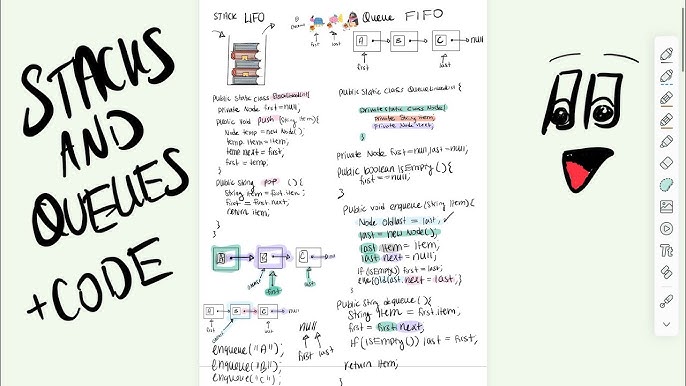 STACKS
AND
QUEUES
+CODE
STACK LIFO
Public void push (String item){
Node temp = new Node();
temp.item=item;
temp.next = first;
first = temp;
}
Public String pop () {
String item = first.item;
first = first.next;
return item;
}
}
A B C
first last
A B C null
null
first last
enqueue("A");
enqueue("B");
enqueue("C");
Queue FIFO
first last
A B C null
first last
Public static class QueueLinkedList {
Private static class Node{
Private String item;
Private Node next;
}
Private Node first=null, last=null;
Public boolean isEmpty(){
first == null;
}
Public void enqueue (String item){
Node oldlast = last;
last = new Node();
last.item = item;
last.next = null;
if (isEmpty) first = last;
else{oldlast.next = last;}
Public String dequeue (){
String item = first.item;
first = first.next;
if(isEmpty()) last = first;
return item;
}